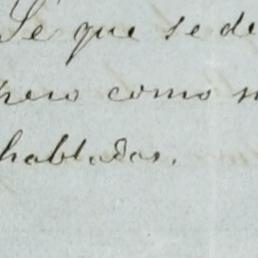 Sé que se de
pero como n
habladas.